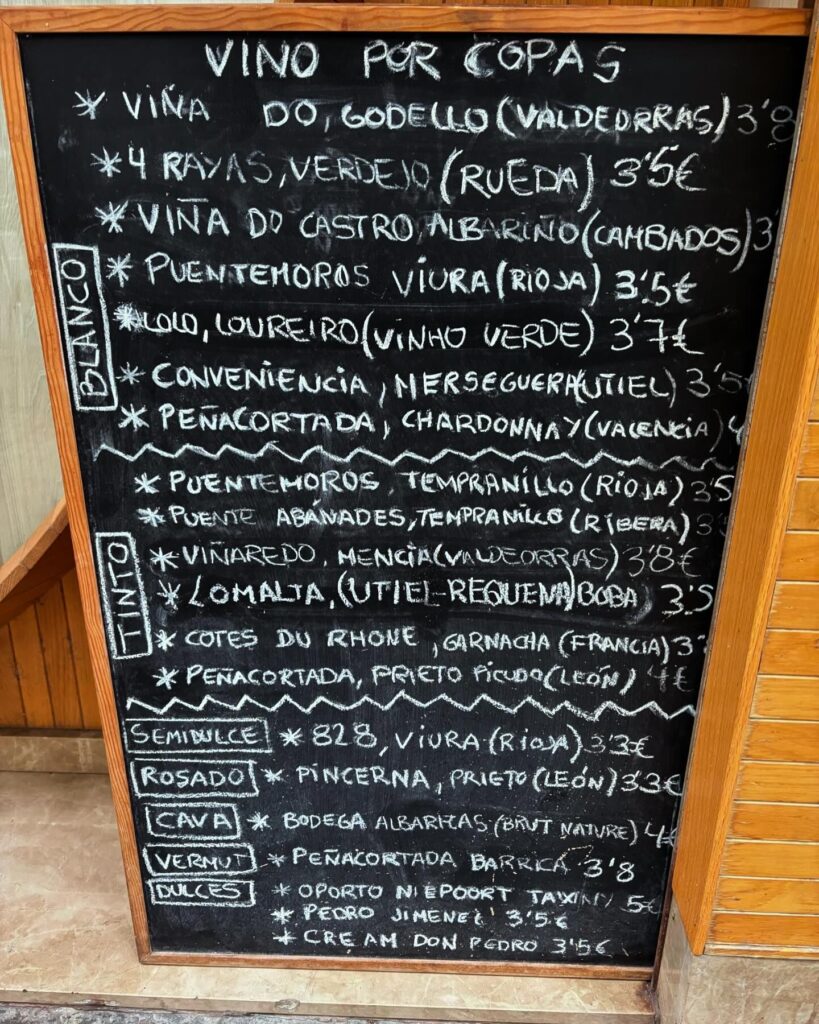 VINO POR COPAS
* VIÑA DO, GODELLO (VALDEORRAS) 3'8
* 4 RAYAS, VERDEJO (RUEDA) 3'5€
* VIÑA DO CASTRO, ALBARIÑO (CAMBADOS) 3'
BLANCO
* PUENTEMOROS VIURA (RIOJA) 3'5€
* LOLO, LOUREIRO (VINHO VERDE) 3'7€
* CONVENIENCIA, MERSEGUERA (UTIEL) 3'5
* PEÑACORTADA, CHARDONNAY (VALENCIA) 4
* PUENTEMOROS, TEMPRANILLO (RIOJA) 3'5
* PUENTE ABÁNADES, TEMPRANILLO (RIBERA) 3'
TINTO
* VIÑAREDO, MENCÍA (VALDEORRAS) 3'8€
* LOMALTA, (UTIEL-REQUENA) BOBA 3'5
* COTES DU RHONE, GARNACHA (FRANCIA) 3'
* PEÑACORTADA, PRIETO PICUDO (LEÓN) 4€
SEMIDULCE * 828, VIURA (RIOJA) 3'3€
ROSADO * PINCERNA, PRIETO (LEÓN) 3'3€
CAVA * BODEGA (BRUT NATURE) 4€
VERMUT * PEÑACORTADA BARRICA 3'8
DULCES * OPORTO NIEPOORT 5€
* PEDRO 3'5€
* CREAM DON PEDRO 3'5€